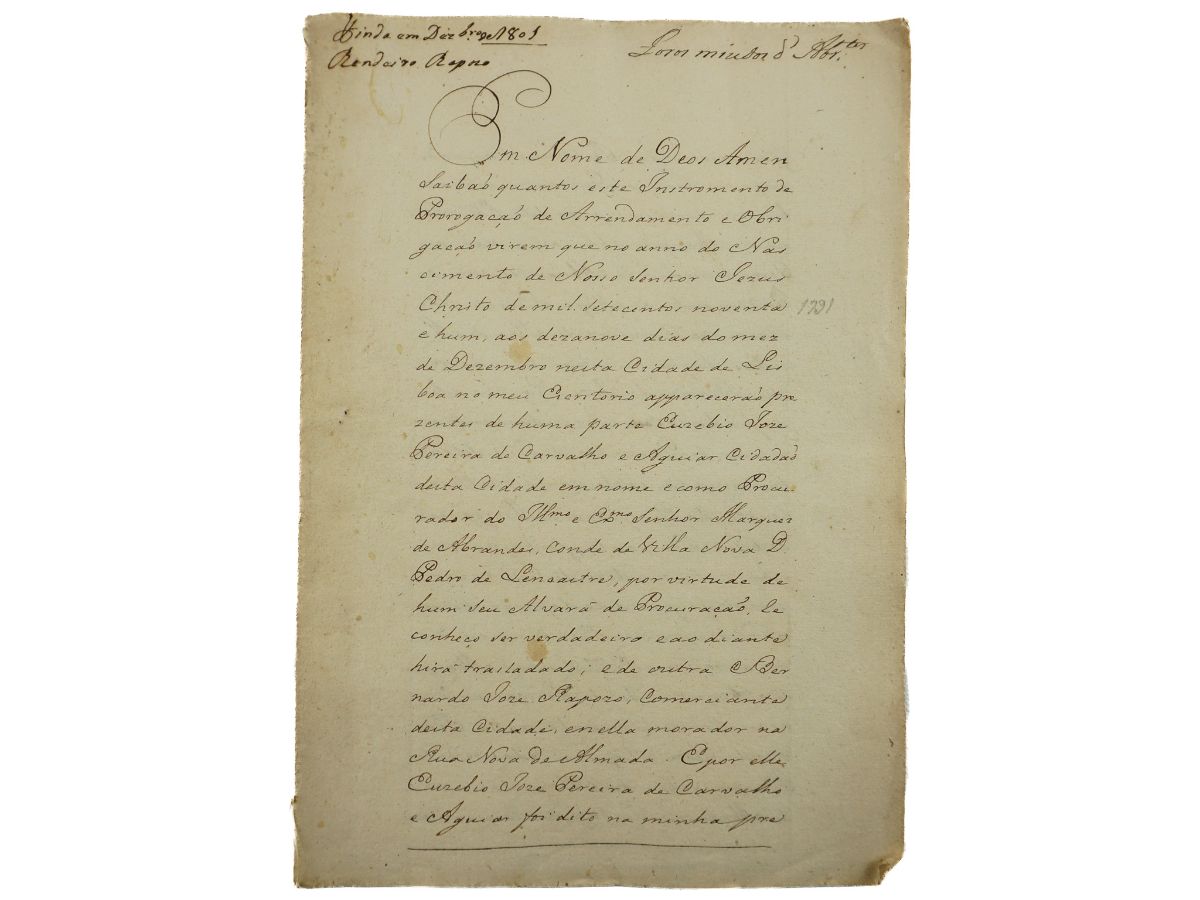 Finda em Dezbro. de 1801
Rendeiro Rapozo
Foros miudos d' Abr.tes
Em Nome de Deos Amen
Saibaõ quantos este Instromento de
Prorogaçaõ de Arrendamento e Obri
gaçaõ virem que no anno do Nas
cimento de Nosso Senhor Jezus
Christo de mil setecentos noventa
e hum, aos dezanove dias do mez
1791
de Dezembro nesta Cidade de Lis
boa no meu Escritorio appareceraõ pre
zentes de huma parte Euzebio Joze
Pereira de Carvalho e Aguiar Cidadaõ
desta Cidade em nome e como Procu
rador do Illmo e Exmo Senhor Marquez
de Abrantes, Conde de Villa Nova D.
Pedro de Lencastre, por virtude de
hum seu Alvará de Procuraçaõ, q̃
conheço ser verdadeiro e ao diante
hirá trasladado; e de outra Ber
nardo Joze Rapozo, Comerciante
desta Cidade, en ella morador na
Rua Nova de Almada. E por elle
Euzebio Joze Pereira de Carvalho
e Aguiar foi dito na minha pre